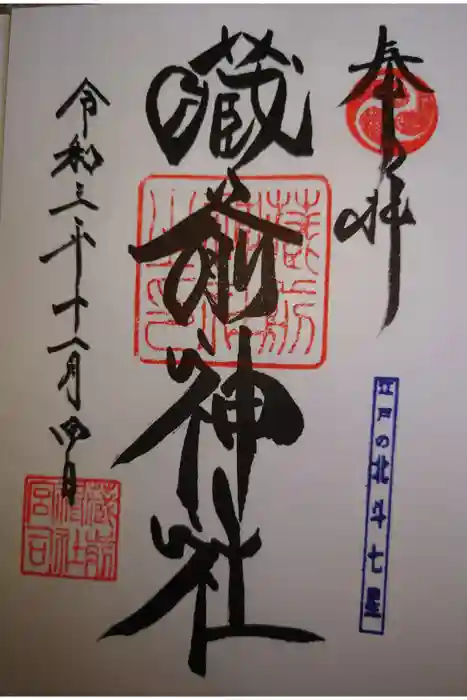 奉拝
江戸の北斗七星
藏前神社
蔵前神社之印
令和三年十一月四日
蔵前神社宮司